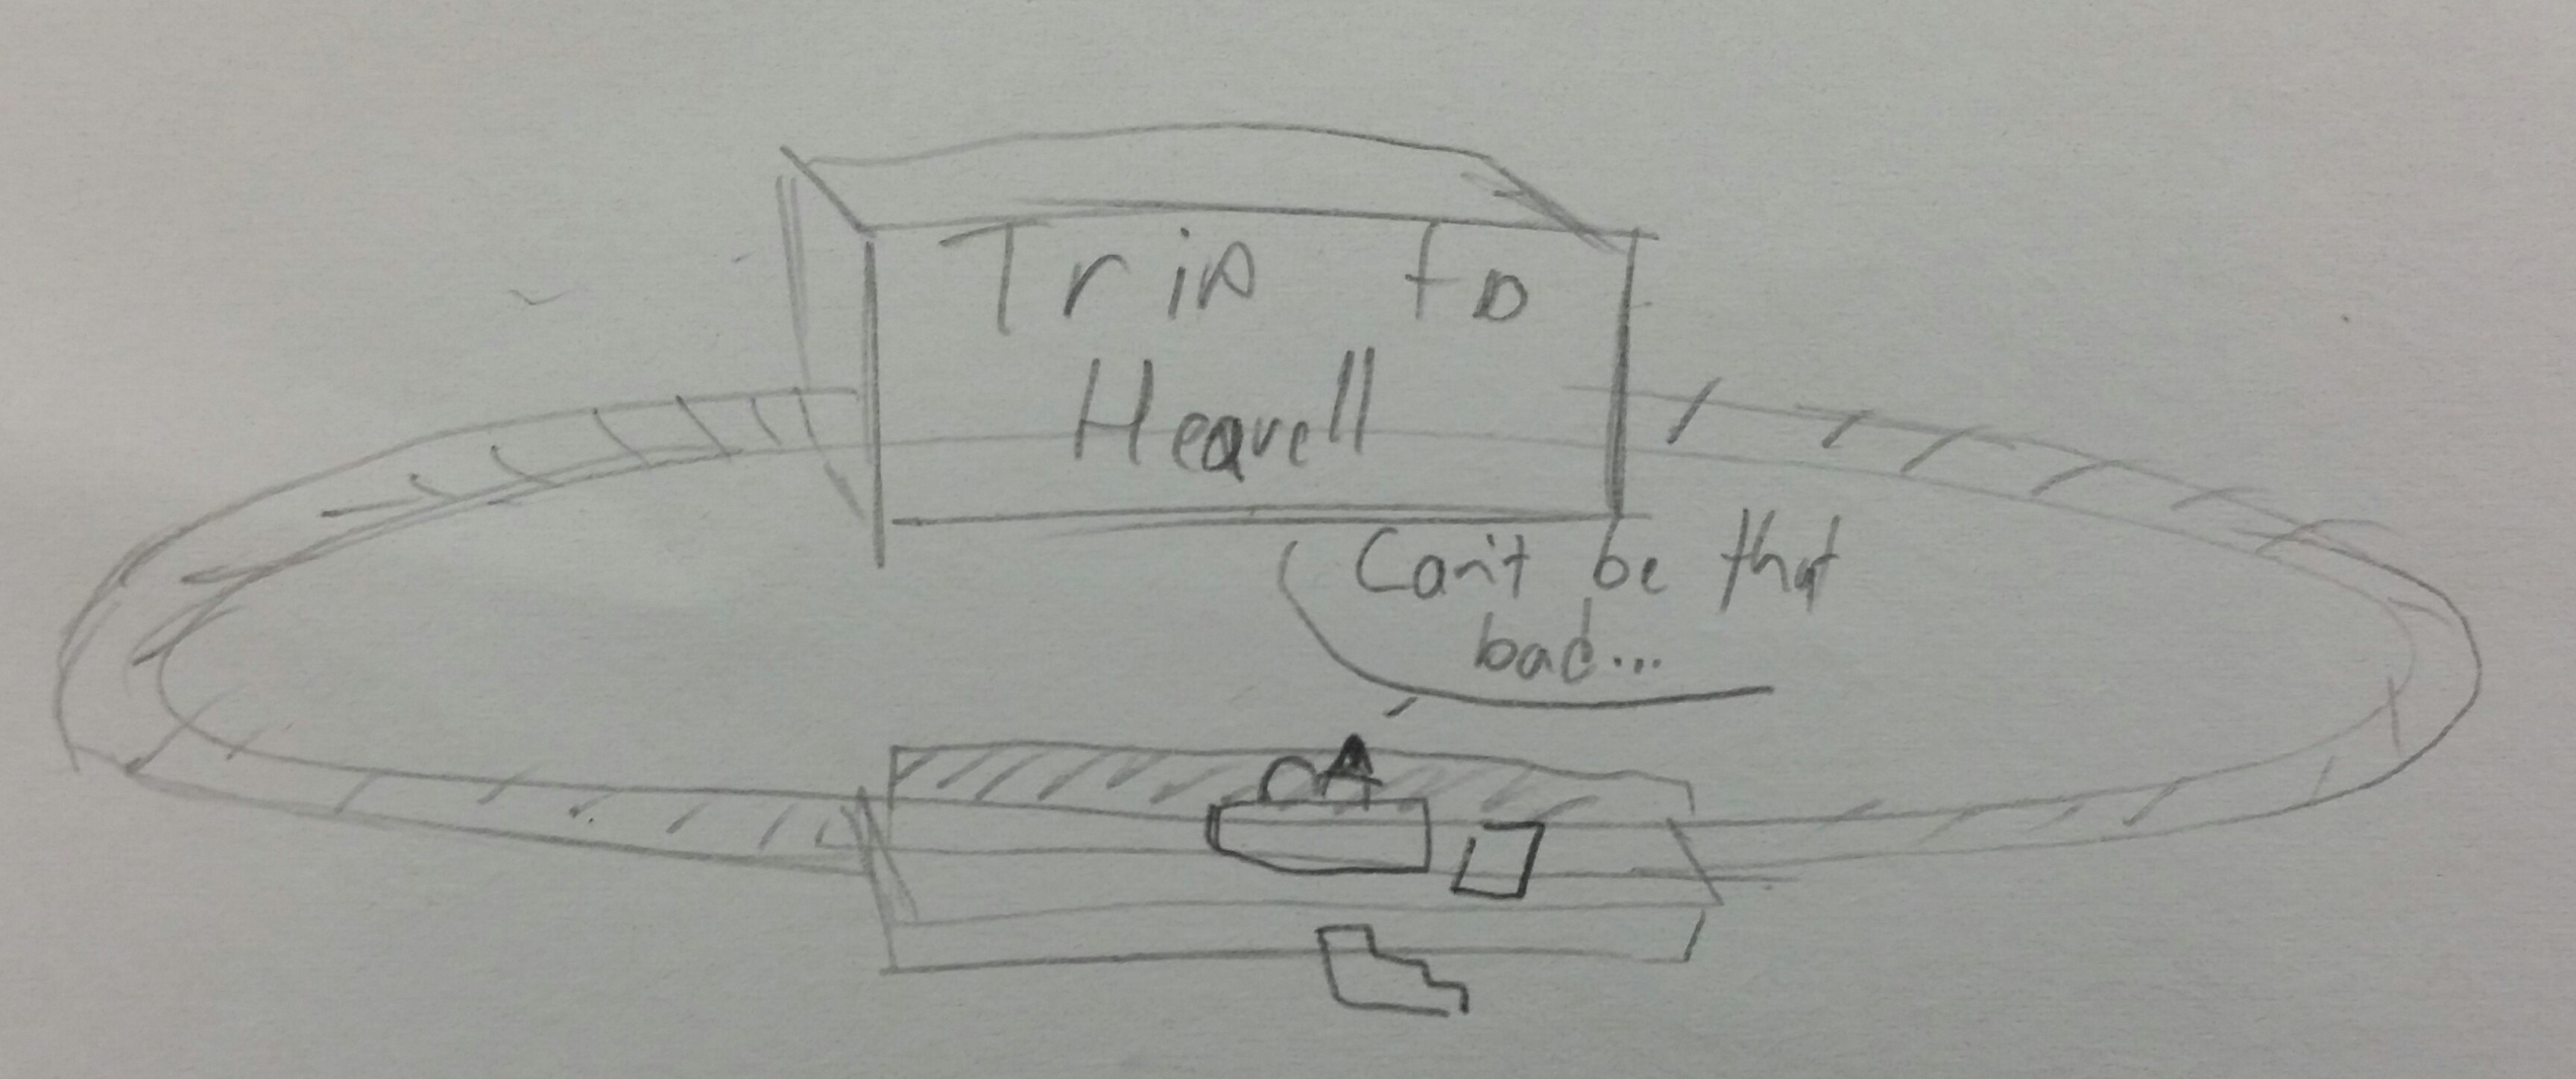 Trip to
Heavell
Can't be that
bad...